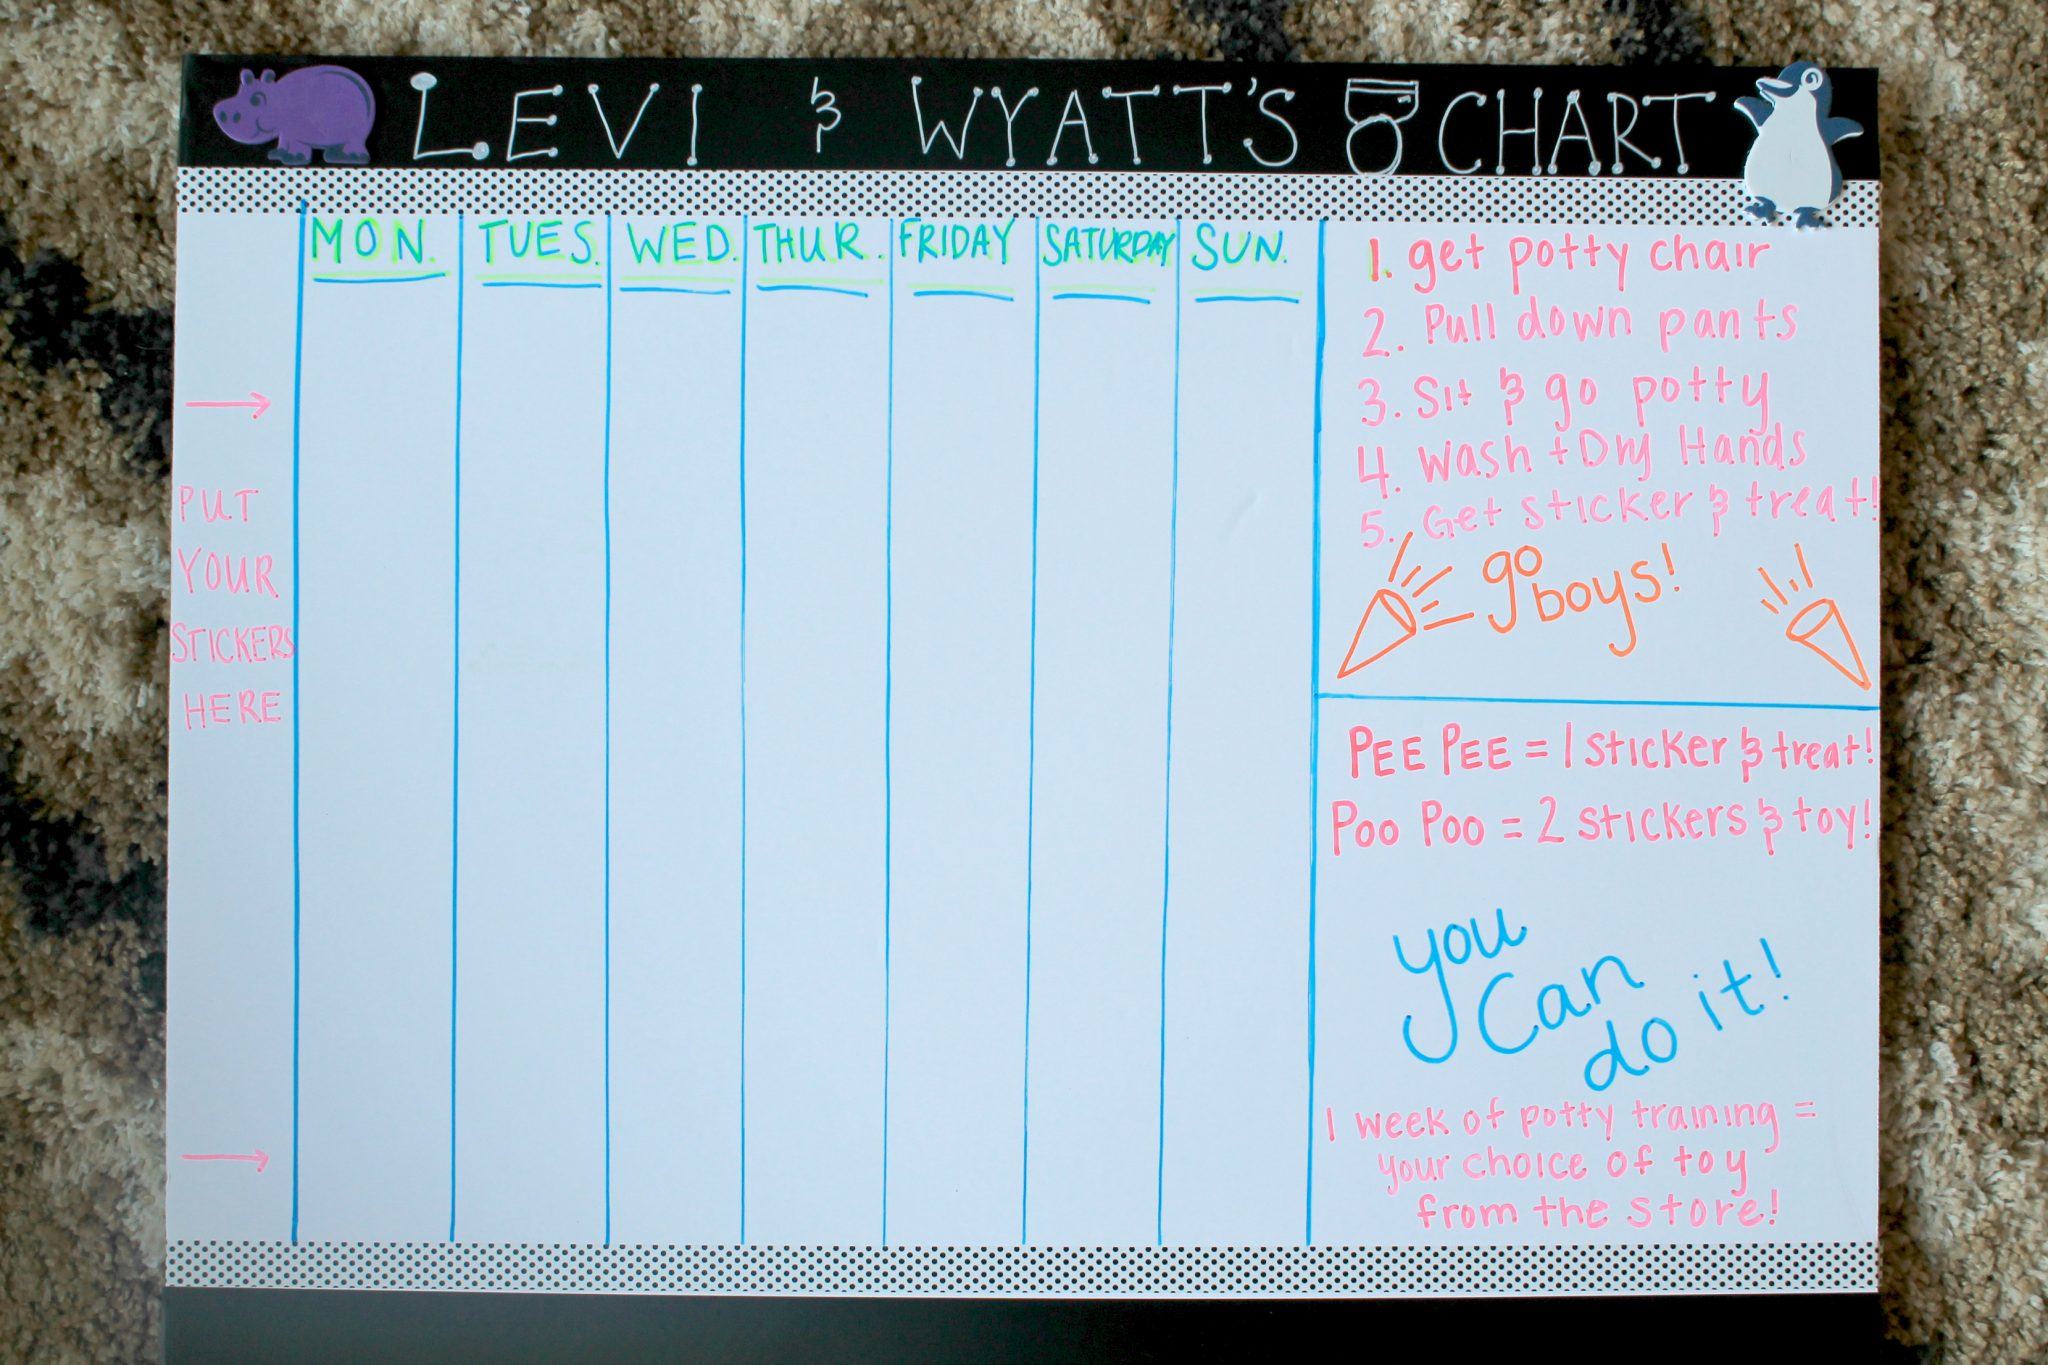 LEVI & WYATT'S CHART
MON. TUES. WED. THUR. FRIDAY SATURDAY SUN.
PUT
YOUR
STICKERS
HERE
1. get potty chair
2. Pull down pants
3. Sit & go potty
4. Wash + Dry Hands
5. Get sticker & treat!
go
boys!
PEE PEE = 1 sticker & treat!
POO POO = 2 stickers & toy!
you
can
do it!
1 week of potty training =
your choice of toy
from the store!